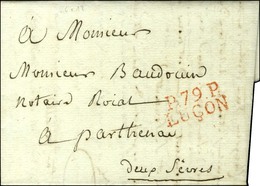 à Monsieur
Monsieur Baudouin
notaire Roial
P.79.P.
LUÇON
à parthenai
deux Sèvres